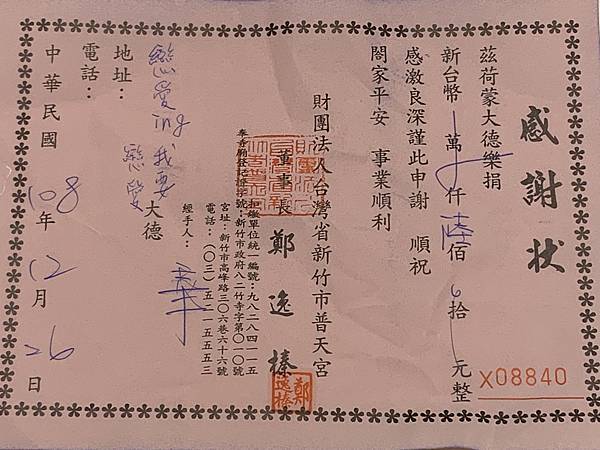 感謝狀
茲荷蒙大德樂捐
新台幣 萬 仟陸佰 拾 元整
感激良深謹此申謝 順祝
閤家平安 事業順利
X08840
財團法人台灣省新竹市普天宮
董事長 鄭逸榛
鄭逸榛
扣繳單位統一編號：九八二八四一一五
寺登記證字號：新竹市政府八二竹寺字第〇一〇號
宮址：新竹市高峰路三〇六巷六十六號
電話：(〇三)五二一五五五三
經手人：
戀愛ing我要
戀愛 大德
地址：
電話：
中華民國 108年 12月 26日